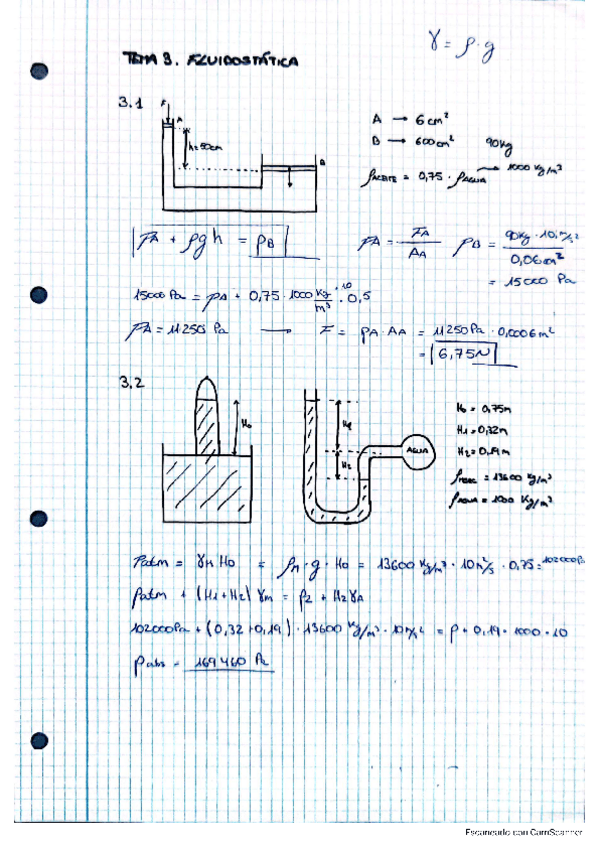 γ = ρ·g
TEMA 3. FLUIDOSTÁTICA
3.1
F
A
h=50cm
B
A → 6cm²
B → 600cm² 90kg
ρACEITE = 0,75 · ρAGUA → 1000 kg/m³
PA + ρgh = PB
PA = FA/AA PB = 90kg·10 m/s²/0,06m² = 15000 Pa
15000 Pa = PA + 0,75·1000 kg/m³ ·10 · 0,5
PA = 11250 Pa → F = PA·AA = 11250Pa·0,0006m²
= 6,75N
3.2
H₀
H₁
H₂
AGUA
H₀ = 0,75m
H₁ = 0,32m
H₂ = 0,19m
ρMERC = 13600 kg/m³
ρAGUA = 1000 kg/m³
Patm = γM H₀ = ρM·g·H₀ = 13600 kg/m³ · 10 m/s² · 0,75 = 102000Pa
Patm + (H₁+H₂) γm = P2 + H₂γA
102000Pa + (0,32+0,19)·13600 kg/m³·10 m/s² = P + 0,19·1000·10
Pabs = 169460 Pa
Escaneado con CamScanner